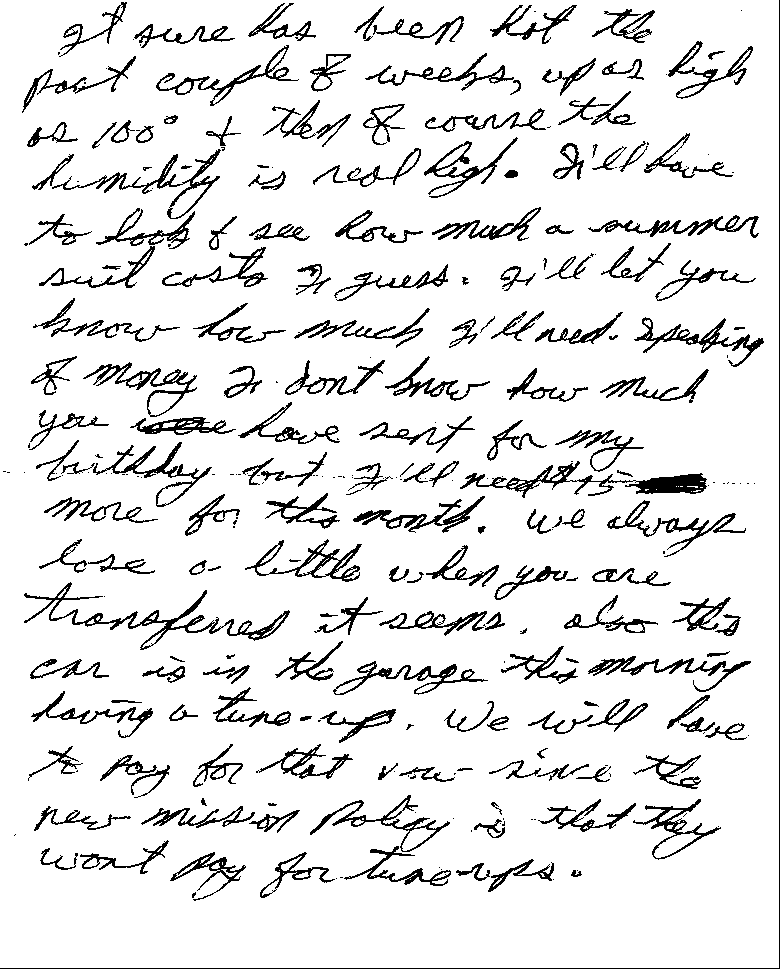 It sure has been hot the
past couple of weeks, up as high
as 100° & then of course the
humidity is real high. I'll have
to look & see how much a summer
suit costs I guess. I'll let you
know how much I'll need. Speaking
of money I dont know how much
you have sent for my
birthday but I'll need $15
more for this month. We always
lose a little when you are
transferred it seems. Also this
car is in the garage this morning
having a tune-up. We will have
to pay for that now since the
new mission policy is that they
wont pay for tune-ups.